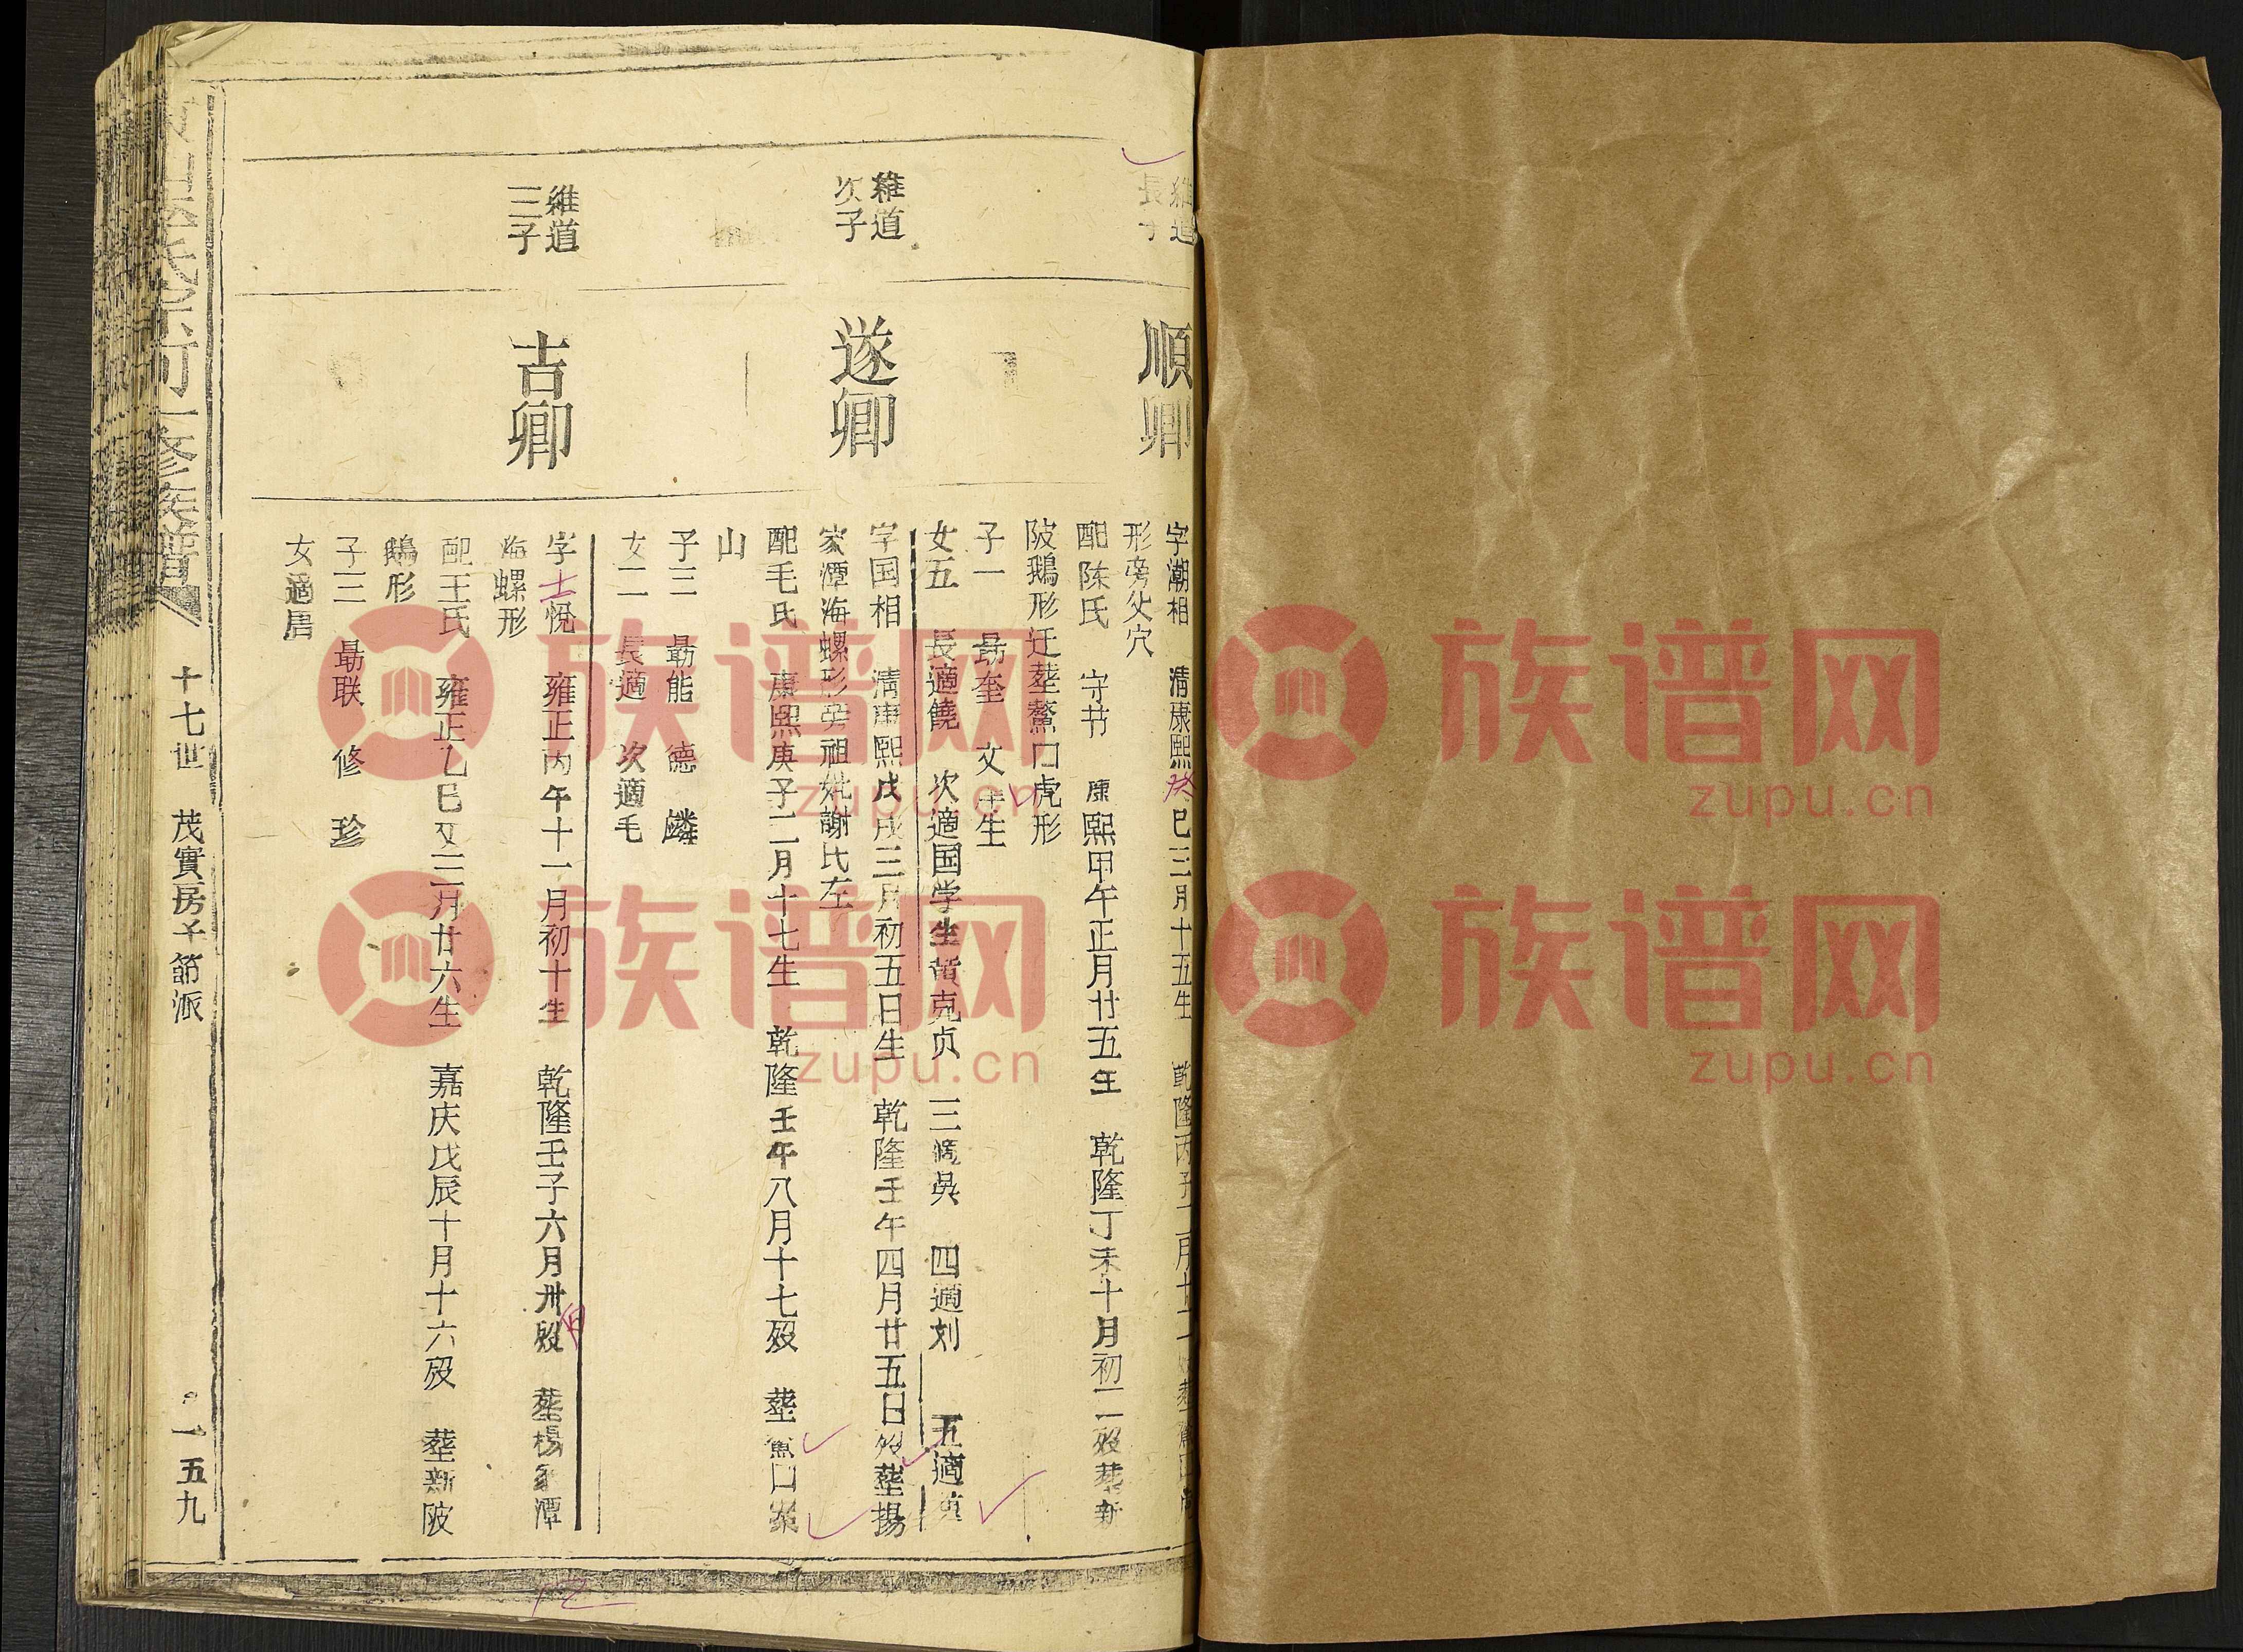 維道
長子
順卿
字潮相 清康熙癸巳三月十五生 乾隆丙子二月廿一歿葬鰲口虎
形旁父穴
配陈氏 守节 康熙甲午正月廿五生 乾隆丁未十月初二歿葬新
陂鵝形迁葬鰲口虎形
子一 勗奎 文生
女五 長適饒 次適国学生黄克贞 三適吳 四適刘 五適
維道
次子
遂卿
字国相 清康熙戊戌三月初五日生 乾隆壬午四月廿五日歿葬揚
家潭海螺形旁祖妣謝氏左
配毛氏 康熙庚子二月十七生 乾隆壬午八月十七歿 葬魚口寨
山
子三 勗能 德 麟
女二 長適 次適毛
維道
三子
吉卿
字士悅 雍正丙午十一月初十生 乾隆壬子六月卅歿 葬楊家潭
海螺形
配王氏 雍正乙巳又三月廿六生 嘉庆戊辰十月十六歿 葬新陂
鵝形
子三 勗联 修 珍
女適周
氏宗河一修族譜
十七世 茂實房子節派
一五九
族谱网
zupu.cn
族谱网
zupu.cn
族谱网
zupu.cn
族谱网
zupu.cn